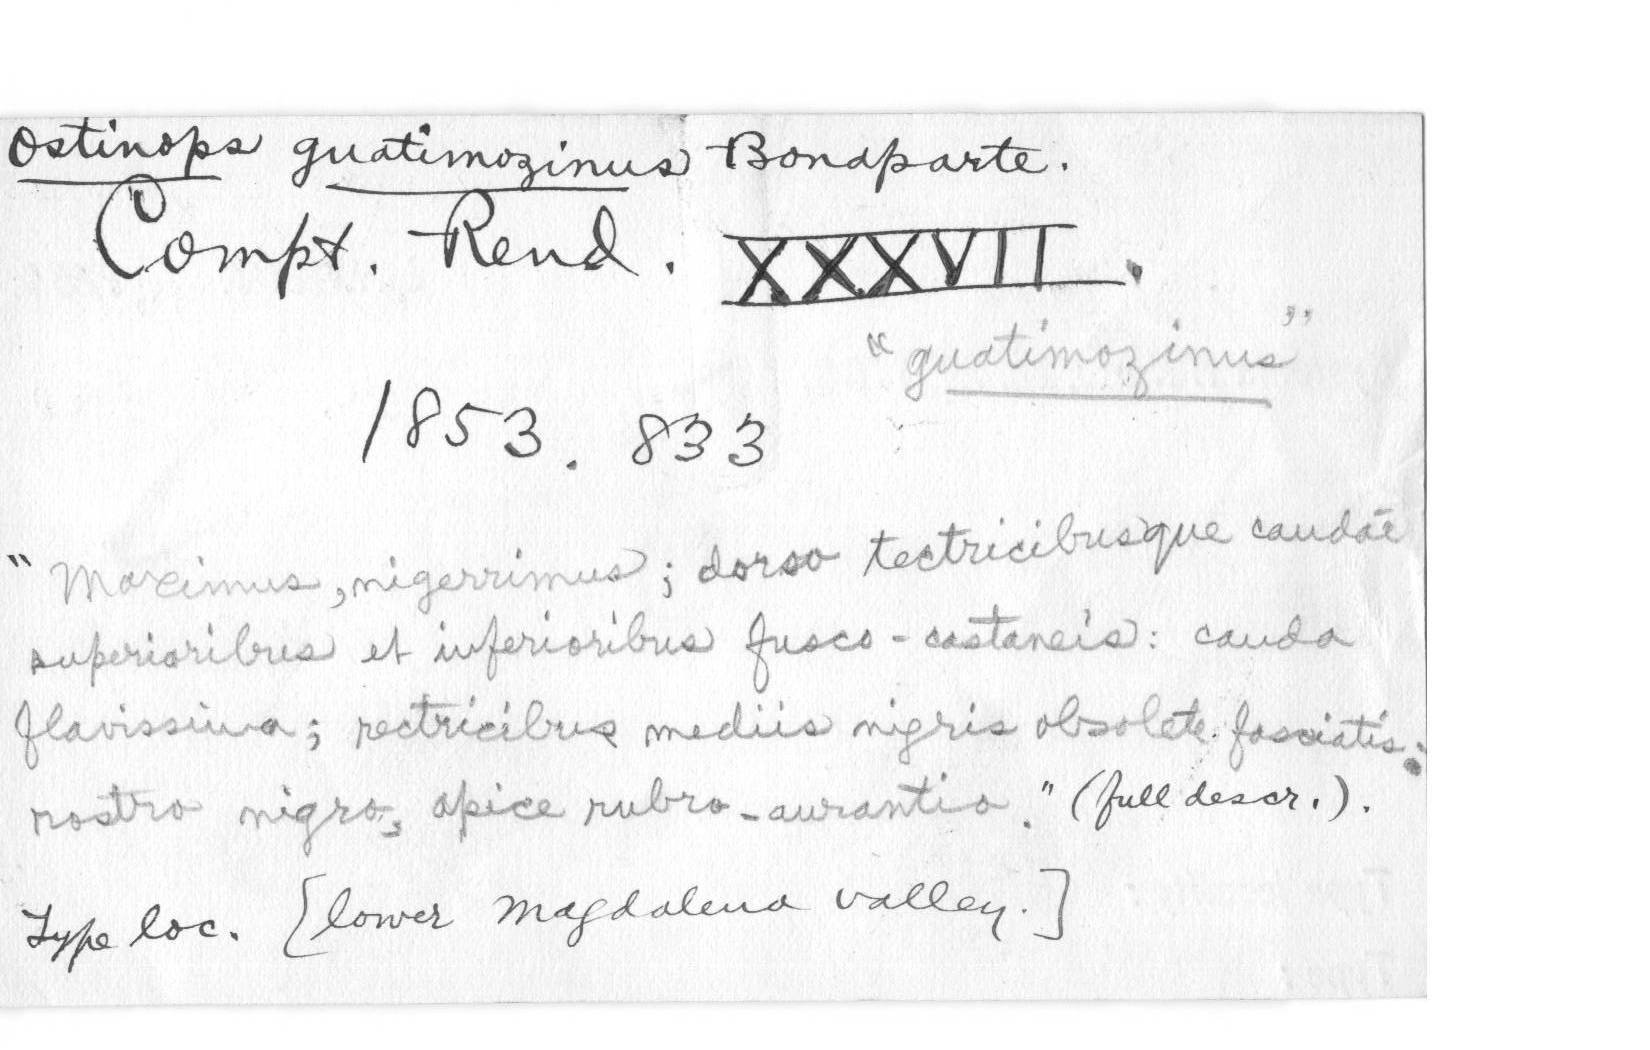 Ostinops guatimozinus Bonaparte.
Compt. Rend. XXXVII.
"guatimozinus"
1853. 833
"Maximus, nigerrimus; dorso tectricibusque caudae
superioribus et inferioribus fusco-castaneis: cauda
flavissima; rectricibus mediis nigris obsolete fasciatis:
rostro nigro, apice rubro-aurantio." (full descr.).
Type loc. [lower Magdalena valley.]